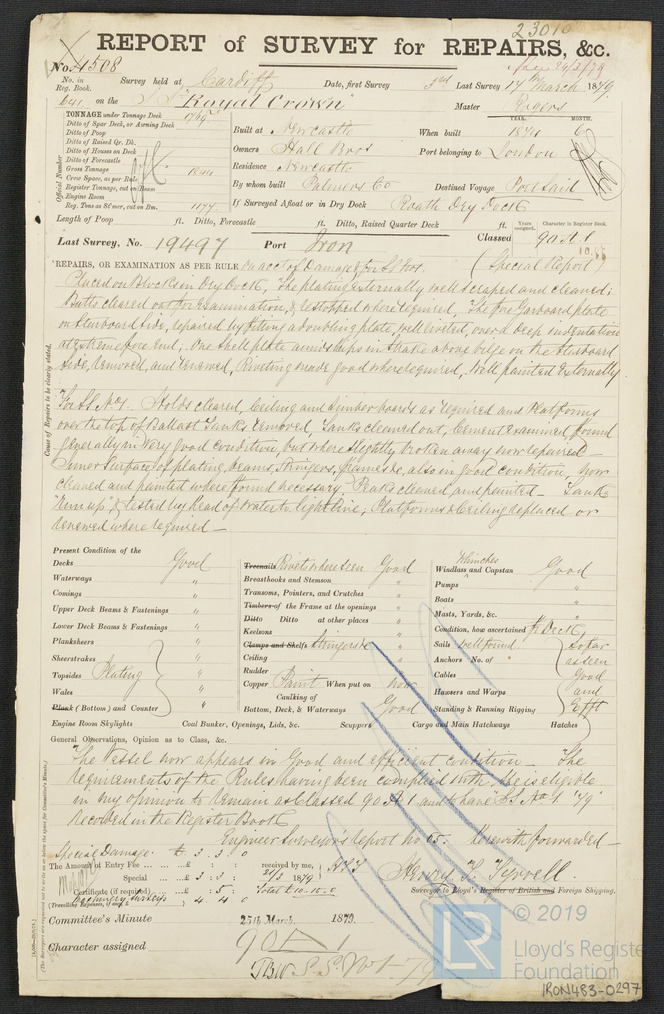 23010
REPORT of SURVEY for REPAIRS, &c.
No. 4508
No. in Reg. Book. Survey held at Cardiff Date, first Survey 3rd Last Survey 17th March 1879
641 on the S.S. "Royal Crown" Master Rogers
TONNAGE under Tonnage Deck
Ditto of Spar Deck, or Awning Deck
Ditto of Poop
Ditto of Raised Qr. Dk.
Ditto of Houses on Deck
Ditto of Forecastle
Gross Tonnage 1844
Crew Space, as per Rule
Register Tonnage, cut on Beam
Engine Room
Reg. Tons as St'mer, cut on Bm. 1177
Official Number
YEAR. MONTH.
Built at Newcastle When built 1874 6
Owners Hall Bros Port belonging to London
Residence Newcastle
By whom built Palmers Co Destined Voyage Port Said
If Surveyed Afloat or in Dry Dock Roath Dry Dock
Length of Poop ft. Ditto, Forecastle ft. Ditto, Raised Quarter Deck ft.
Years assigned. Character in Register Book.
Last Survey, No. 19497 Port Iron Classed 90 A 1
REPAIRS, OR EXAMINATION AS PER RULE, on acct of Damage & for SS No1. (Special Report)
Placed on Blocks in Dry Dock, The plating externally well scraped and cleaned;
Butts cleared out for Examination, & restopped where required, The fore Garboard plate
on Starboard side, repaired by fitting a doubling plate, well riveted, over a deep indentation
at extreme fore end; One Shell plate amidships in Strake above bilge on the Starboard
side, removed, and renewed, Riveting made good where required, Well painted Externally
For SS No1. Holds cleared, Ceiling and limber boards as required and Platforms
over the top of Ballast Tanks removed, Tanks cleaned out, Cement Examined, found
generally in very good condition, but where slightly broken away now repaired
Inner Surface of plating, beams, Stringers, frames &c, also in good condition, now
cleaned and painted where found necessary. Peaks cleaned and painted — Tanks
"run up" & tested by head of Water to light line, Platforms & Ceiling replaced or
renewed where required —
Cause of Repairs to be clearly stated.
Present Condition of the
Decks Good
Waterways "
Comings "
Upper Deck Beams & Fastenings "
Lower Deck Beams & Fastenings "
Planksheers "
Sheerstrakes "
Topsides Plating "
Wales "
Plank (Bottom) and Counter "
Treenails Rivets where seen Good
Breasthooks and Stemson "
Transoms, Pointers, and Crutches "
Timbers of the Frame at the openings "
Ditto Ditto at other places "
Keelsons "
Clamps and Shelfs Stringers &c "
Ceiling "
Rudder "
Copper Paint When put on now
Caulking of
Bottom, Deck, & Waterways Good
Whinches
Windlass and Capstan Good
Pumps "
Boats "
Masts, Yards, &c. "
Condition, how ascertained fr Deck
Sails well found so far
Anchors No. of as seen
Cables Good
Hawsers and Warps and
Standing & Running Rigging Efft
Engine Room Skylights Coal Bunker, Openings, Lids, &c. Scuppers Cargo and Main Hatchways Hatches
General Observations, Opinion as to Class, &c.
The Vessel now appears in Good and efficient condition — The
requirements of the Rules having been complied with, She is eligible
in my opinion to remain as Classed 90 A 1 and to have "SS No 1 '79"
recorded in the Register Book
Engineer Surveyor's Report No 65. herewith forwarded —
Special Damage £ 3 : 3 : 0
The Amount of Entry Fee ... £ : : received by me,
Special ... £ 3 : 3 :
Certificate (if required) ... £ : 5 : Total £ 10.15.0
Machinery Survey 4 4 0
(Travelling Expenses, if any, £ )
Surveyor to Lloyd's Register of British and Foreign Shipping.
Committee's Minute 25th March, 1879.
Character assigned 90 A 1
S.S. No 1 - 79
© 2019
LR
Lloyd's Register
Foundation
IRON483-0297